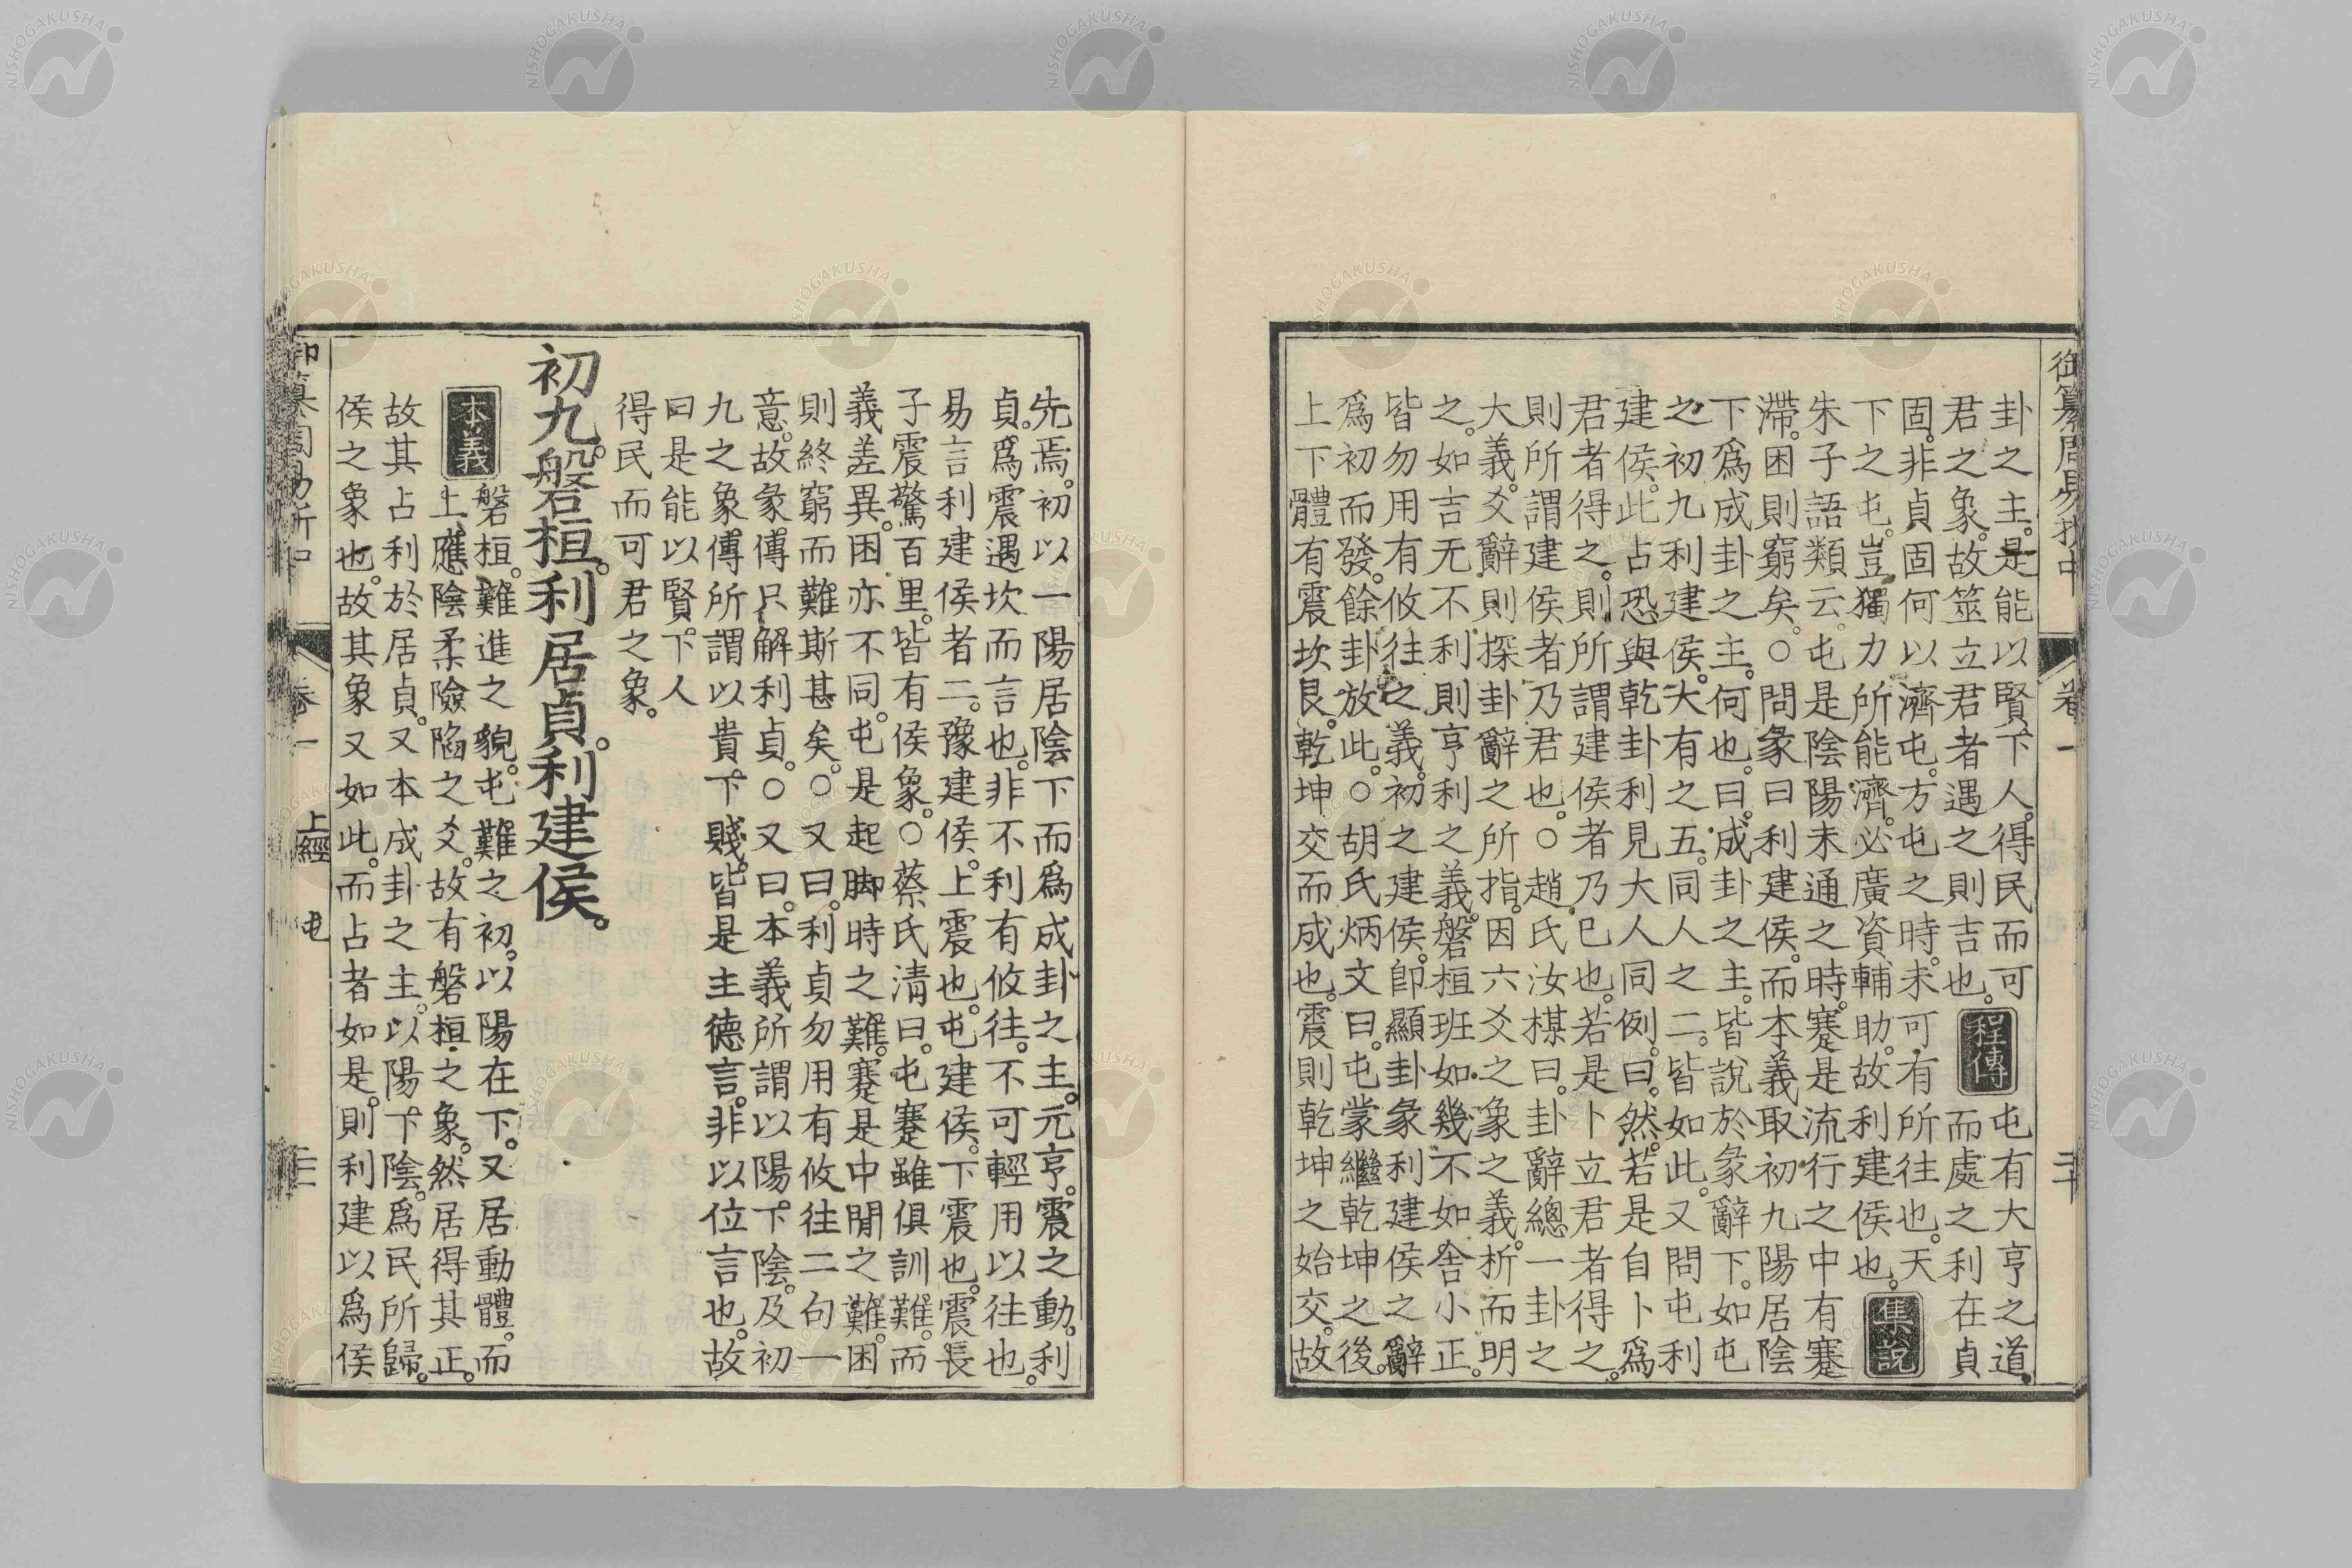 御纂周易折中 卷一 三十
卦之主。是能以賢下人。得民而可
君之象。故筮立君者遇之則吉也。
程傳
屯有大亨之道。
而處之利在貞
固。非貞固何以濟屯。方屯之時。未可有所往也。天
下之屯。豈獨力所能濟。必廣資輔助。故利建侯也。
集說
朱子語類云。屯是陰陽未通之時。蹇是流行之中有蹇
滯。困則窮矣。○問彖曰利建侯。而本義取初九陽居陰
下爲成卦之主。何也。曰。成卦之主。皆說於彖辭下。如屯
之初九利建侯。大有之五。同人之二。皆如此。又問屯利
建侯。此占恐與乾卦利見大人同例。曰。然。若是自卜爲
君者得之。則所謂建侯者乃已也。若是卜立君者得之。
則所謂建侯者乃君也。○趙氏汝楳曰。卦辭總一卦之
大義。爻辭則探卦辭之所指。因六爻之象之義。析而明
之。如吉无不利則亨利之義。磐桓班如。幾不如舍小正。
皆勿用有攸往之義。初之建侯。卽顯卦彖利建侯之辭
爲初而發。餘卦放此。○胡氏炳文曰。屯蒙繼乾坤之後。
上下體有震坎艮。乾坤交而成也。震則乾坤之始交。故
先焉。初以一陽居陰下而爲成卦之主。元亨。震之動。利
貞。爲震遇坎而言也。非不利有攸往。不可輕用以往也。
易言利建侯者二。豫建侯。上震也。屯建侯。下震也。震長
子。震驚百里。皆有侯象。○蔡氏清曰。屯蹇雖俱訓難。而
義差異。困亦不同。屯是起脚時之難。蹇是中閒之難。困
則終窮而難斯甚矣。○又曰。利貞勿用有攸往二句一
意。故彖傳只解利貞。○又曰。本義所謂以陽下陰。及初
九之象傳所謂以貴下賤。皆是主德言。非以位言也。故
曰是能以賢下人
得民而可君之象。
初九。磐桓。利居貞。利建侯。
本義
磐桓。難進之貌。屯難之初。以陽在下。又居動體。而
上應陰柔險陷之爻。故有磐桓之象。然居得其正。
故其占利於居貞。又本成卦之主。以陽下陰。爲民所歸。
侯之象也。故其象又如此。而占者如是。則利建以爲侯
御纂周易折中 卷一 上經 屯